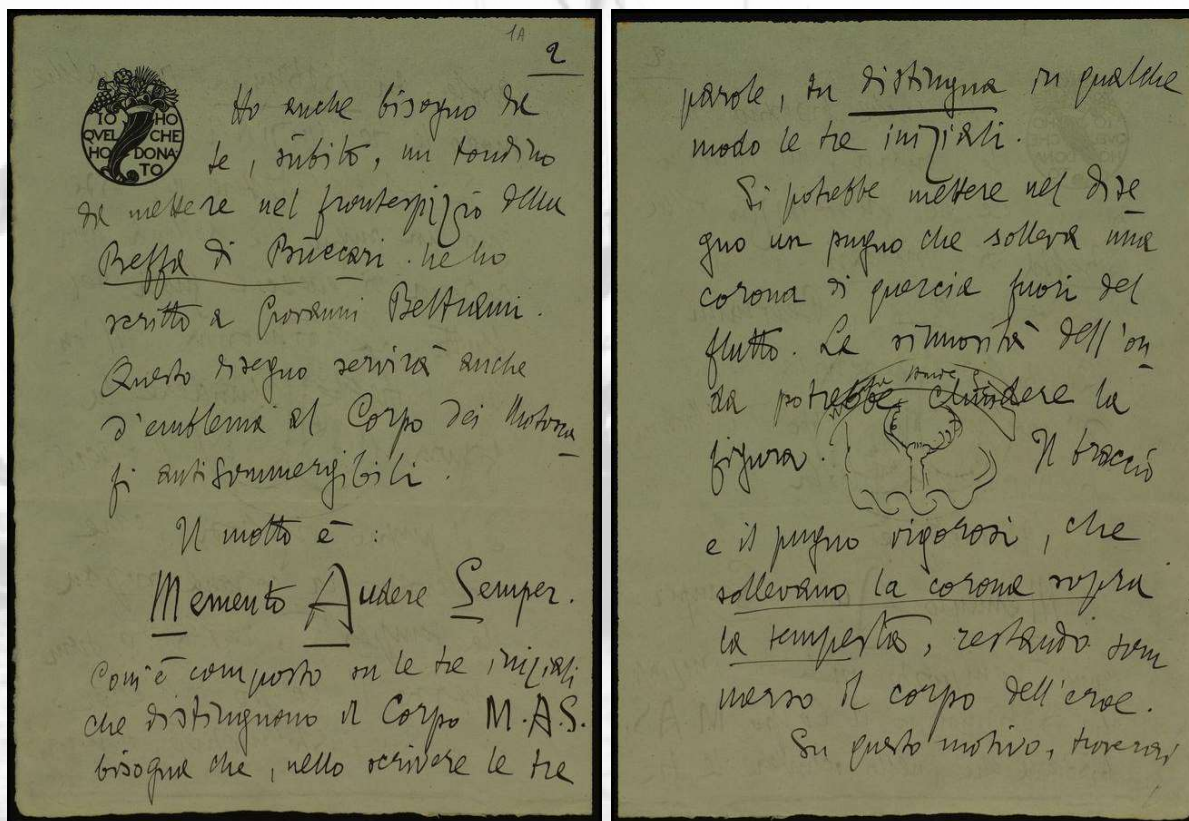 1A
2
IO HO
QVEL CHE
HO DONA
TO
Ho anche bisogno da
te, sùbito, un tondino
da mettere nel frontespizio della
Beffa di Bùccari. Ne ho
scritto a Giovanni Beltrami.
Questo disegno servirà anche
d'emblema al Corpo dei Motosca
fi antisommergibili.
Il motto è:
Memento Audere Semper.
Com'è composto su le tre iniziali
che distinguono il Corpo M.A.S.
bisogna che, nello scrivere le tre
parole, tu distingua in qualche
modo le tre iniziali.
Si potrebbe mettere nel dise
gno un pugno che solleva una
corona di quercia fuori del
flutto. La sinuosità dell'on
da potrebbe chiudere la
figura. Il braccio
e il pugno vigorosi, che
sollevano la corona sopra
la tempesta, restando som
merso il corpo dell'eroe.
Su questo motivo, troverai